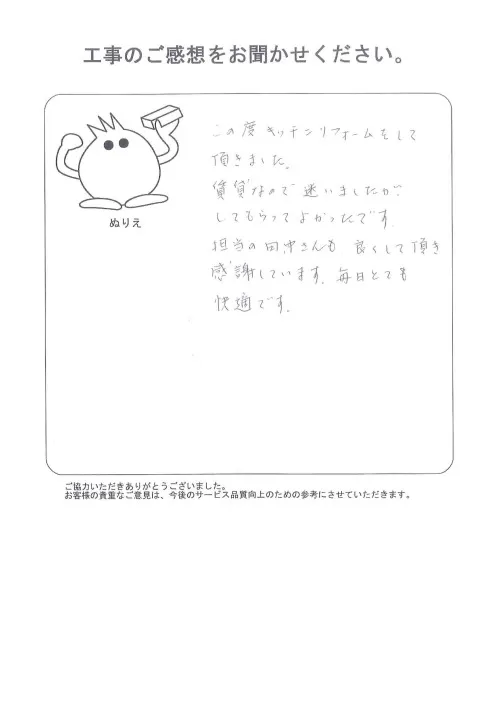 工事のご感想をお聞かせください。
ぬりえ
この度キッチンリフォームをして
頂きました。
賃貸なので迷いましたが
してもらってよかったです。
担当の田中さんも良くして頂き
感謝しています。毎日とても
快適です。
ご協力いただきありがとうございました。
お客様の貴重なご意見は、今後のサービス品質向上のための参考にさせていただきます。